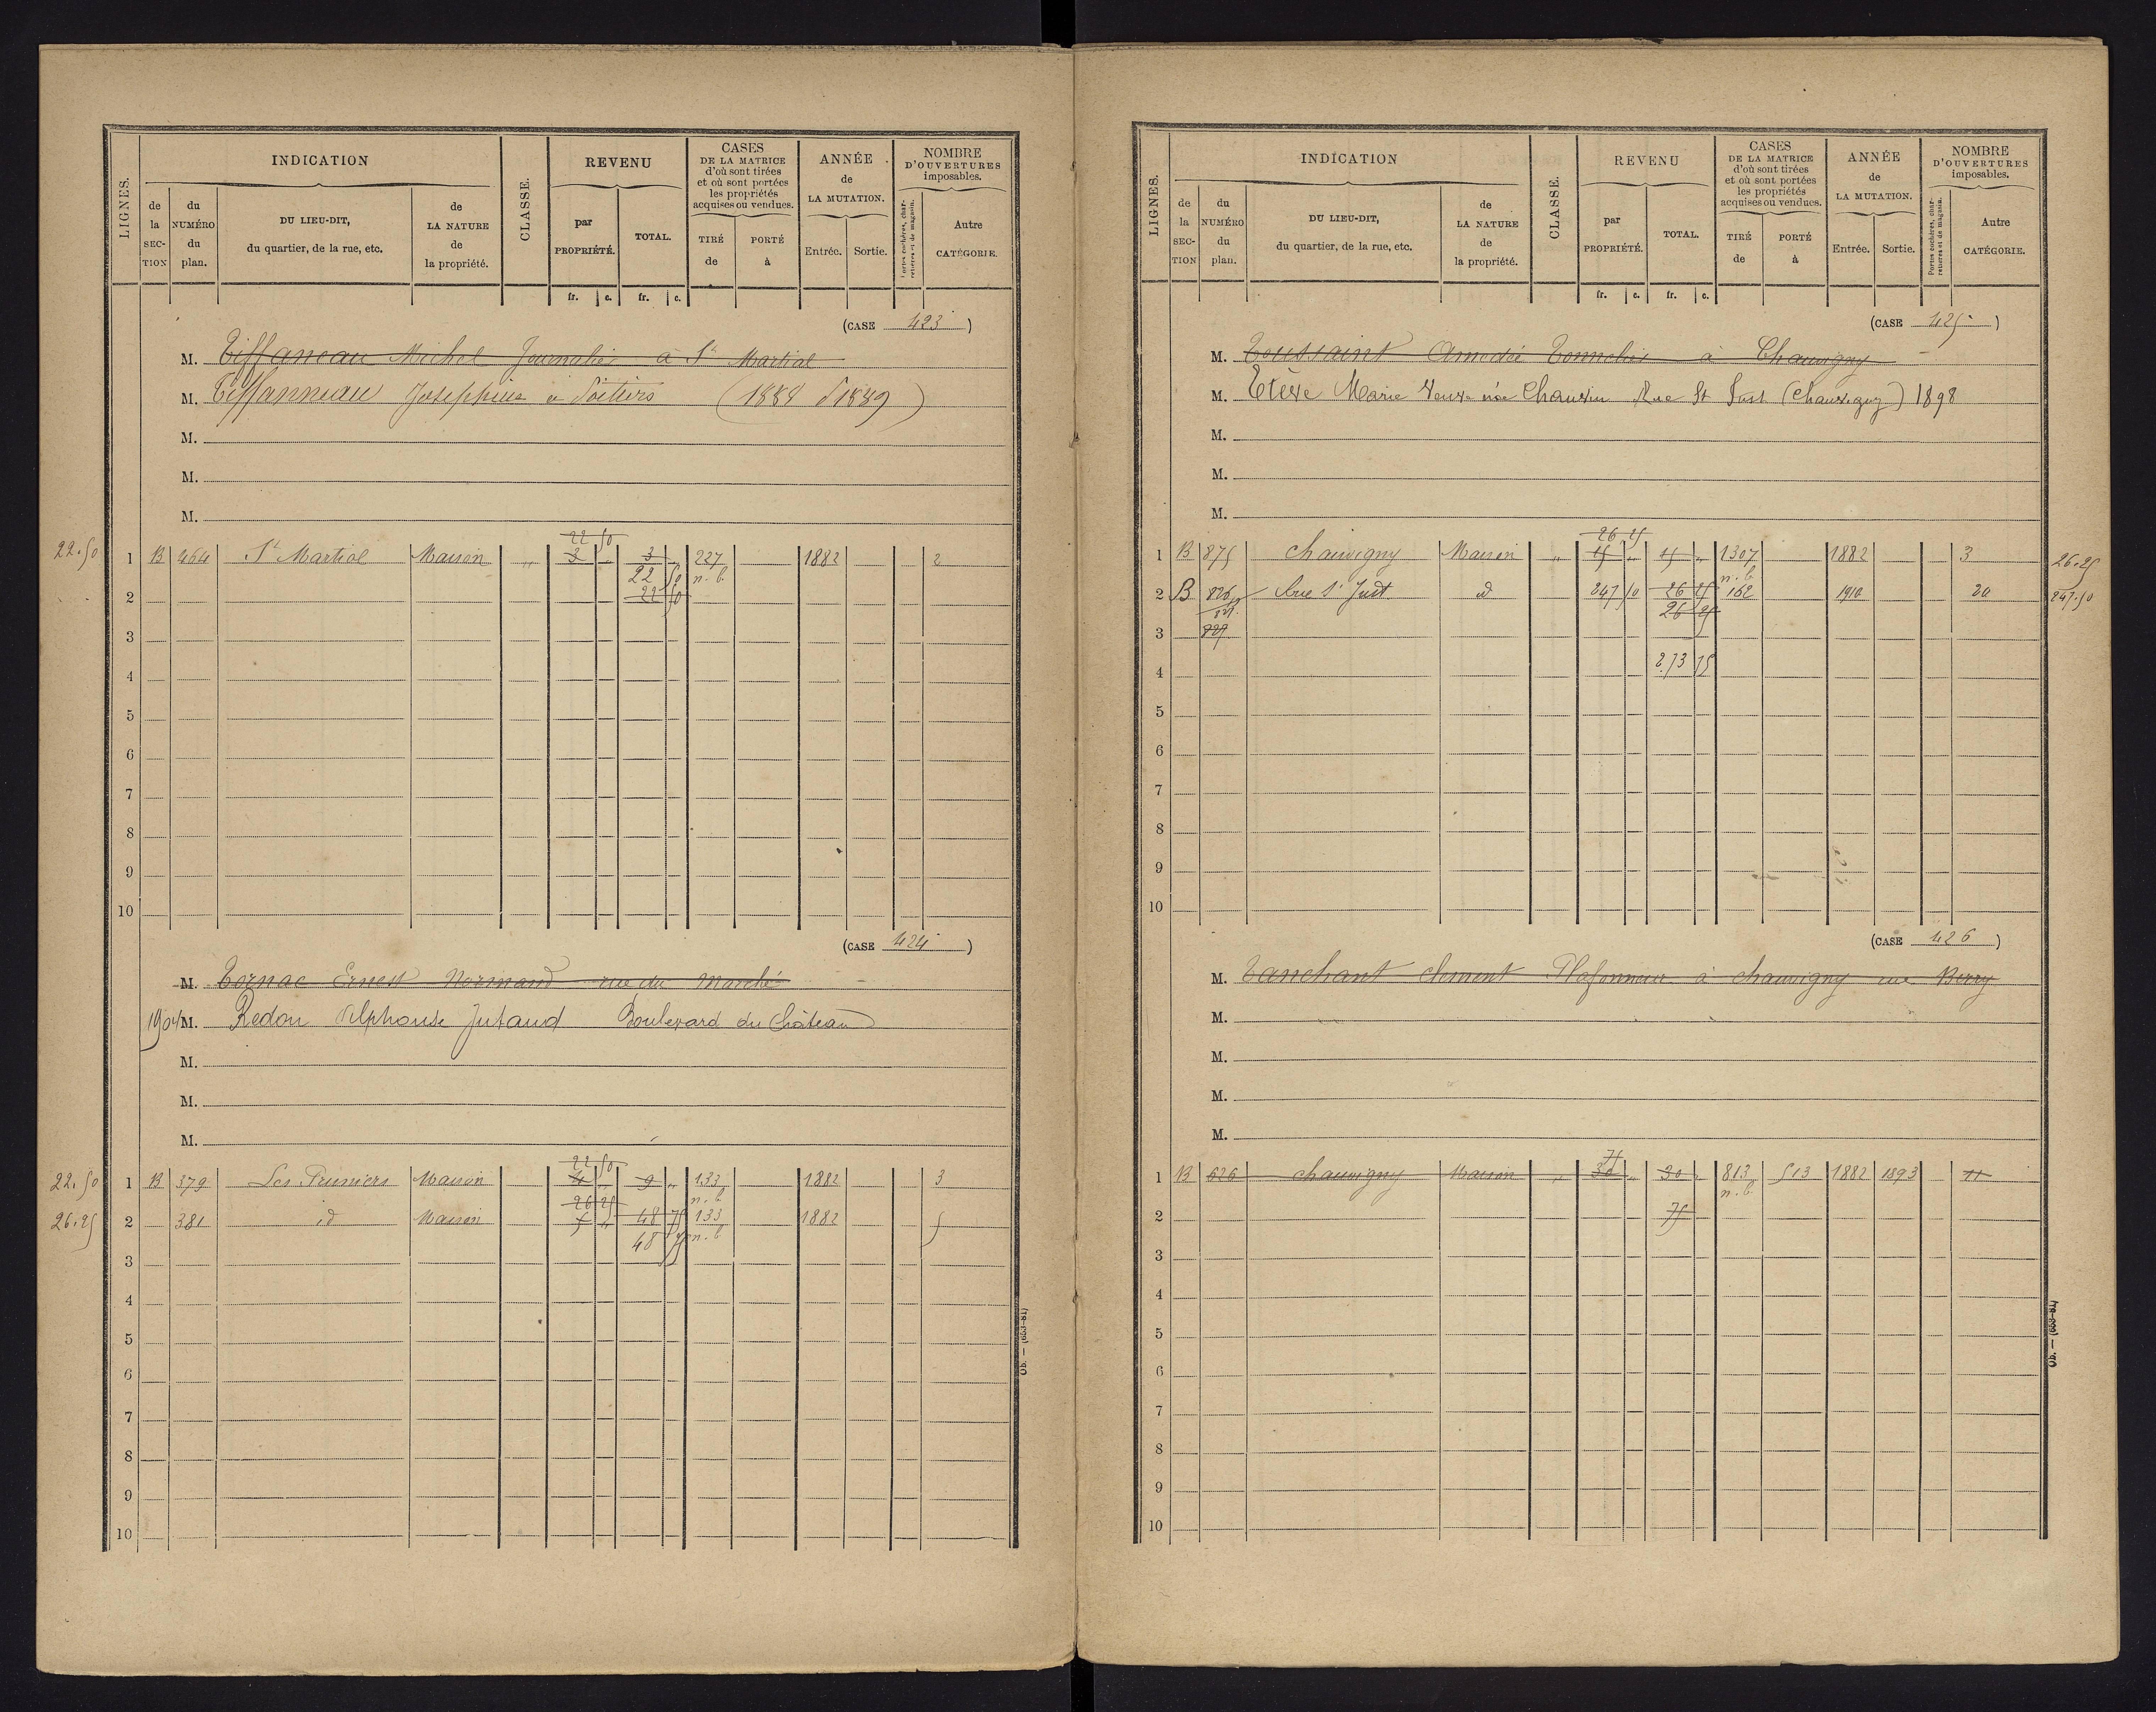 LIGNES.
INDICATION
de la SECTION
du NUMÉRO du plan.
DU LIEU-DIT, du quartier, de la rue, etc.
de LA NATURE de la propriété.
CLASSE.
REVENU
par PROPRIÉTÉ.
TOTAL.
fr. c. fr. c.
CASES DE LA MATRICE d'où sont tirées et où sont portées les propriétés acquises ou vendues.
TIRÉ de
PORTÉ à
ANNÉE de LA MUTATION.
Entrée. Sortie.
NOMBRE D'OUVERTURES imposables.
Portes cochères, charretières et de magasin.
Autre CATÉGORIE.
(CASE 423)
M. Tiffaneau Michel Journalier à St Martial
M. Tiffanneau Joséphine à Poitiers (1888 P1889)
M.
M.
M.
22 50
22.50 1 B 464 St Martial Maison „ 3 „ 3 „ 227 1882 2
22 50 n.b.
2 22 50
3
4
5
6
7
8
9
10
(CASE 424)
M. Tornac Ernest Normand rue du Marché
1904 M. Redon Alphonse Jutaud Boulevard du Château
M.
M.
M.
22 50
22.50 1 B 379 Les Pruniers Maison 4 „ 9 „ 133 1882 3
26 25 n.b
26.25 2 381 id Maison 5 „ 48 75 133 1882 5
48 75 n.b
3
4
5
6
7
8
9
10
Ob. — (653-81)
LIGNES.
INDICATION
de la SECTION
du NUMÉRO du plan.
DU LIEU-DIT, du quartier, de la rue, etc.
de LA NATURE de la propriété.
CLASSE.
REVENU
par PROPRIÉTÉ.
TOTAL.
fr. c. fr. c.
CASES DE LA MATRICE d'où sont tirées et où sont portées les propriétés acquises ou vendues.
TIRÉ de
PORTÉ à
ANNÉE de LA MUTATION.
Entrée. Sortie.
NOMBRE D'OUVERTURES imposables.
Portes cochères, charretières et de magasin.
Autre CATÉGORIE.
(CASE 425)
M. Toussaint Amédée Tonnelier à Chauvigny
M. Etève Marie Veuve née Chauvin Rue St Just (Chauvigny) 1898
M.
M.
M.
26 25
1 B 875 Chauvigny Maison „ 15 „ 15 „ 1307 1882 3 26.25
n.b.
2 B 826 Rue St Just id 247 50 26 25 162 1910 20 247.50
26 25
3
4 273 75
5
6
7
8
9
10
(CASE 426)
M. Tanchant Clement Plafonneur à chauvigny rue Berry
M.
M.
M.
M.
75
1 B 626 chauvigny Maison „ 30 „ 30 „ 813 513 1882 1893 11
n.b.
2 75
3
4
5
6
7
8
9
10
Ob. — (653-81)